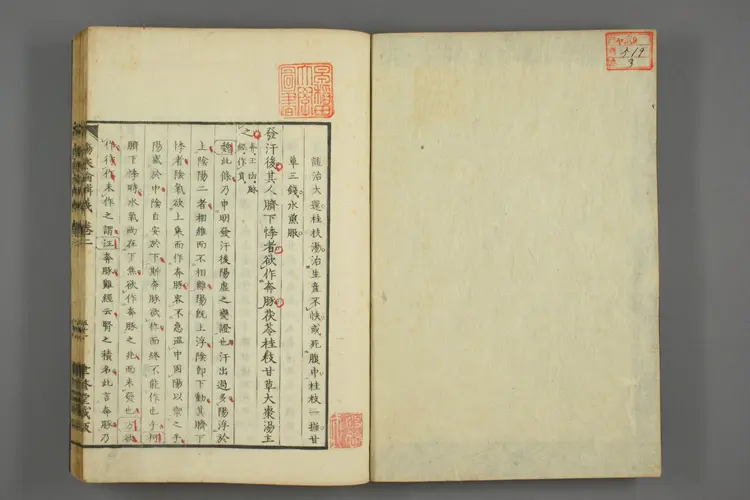 髓治大選桂枝湯治生產不快或死腹中桂枝一握甘
草三錢水煎服
發汗後其人臍下悸者欲作奔豚茯苓桂枝甘草大棗湯主
之
奔玉函脉
經作賁
魏此條乃申明發汗後陽虛之變證也汗出過多陽浮於
上陰陽二者相維而不相離陽旣上浮陰卽下動其臍下
悸者陰氣欲上乘而作奔豚容不急溫中固陽以禦之乎
陽盛於中陰自安於下斯奔豚欲作而終不能作也乎柯
臍下悸時水氣尚在下焦欲作奔豚之兆而未發也方欲
作待作未作之謂汪奔豚難經云腎之積名此言奔豚乃
傷寒論輯義 卷二
聿脩堂藏版
5.19
3